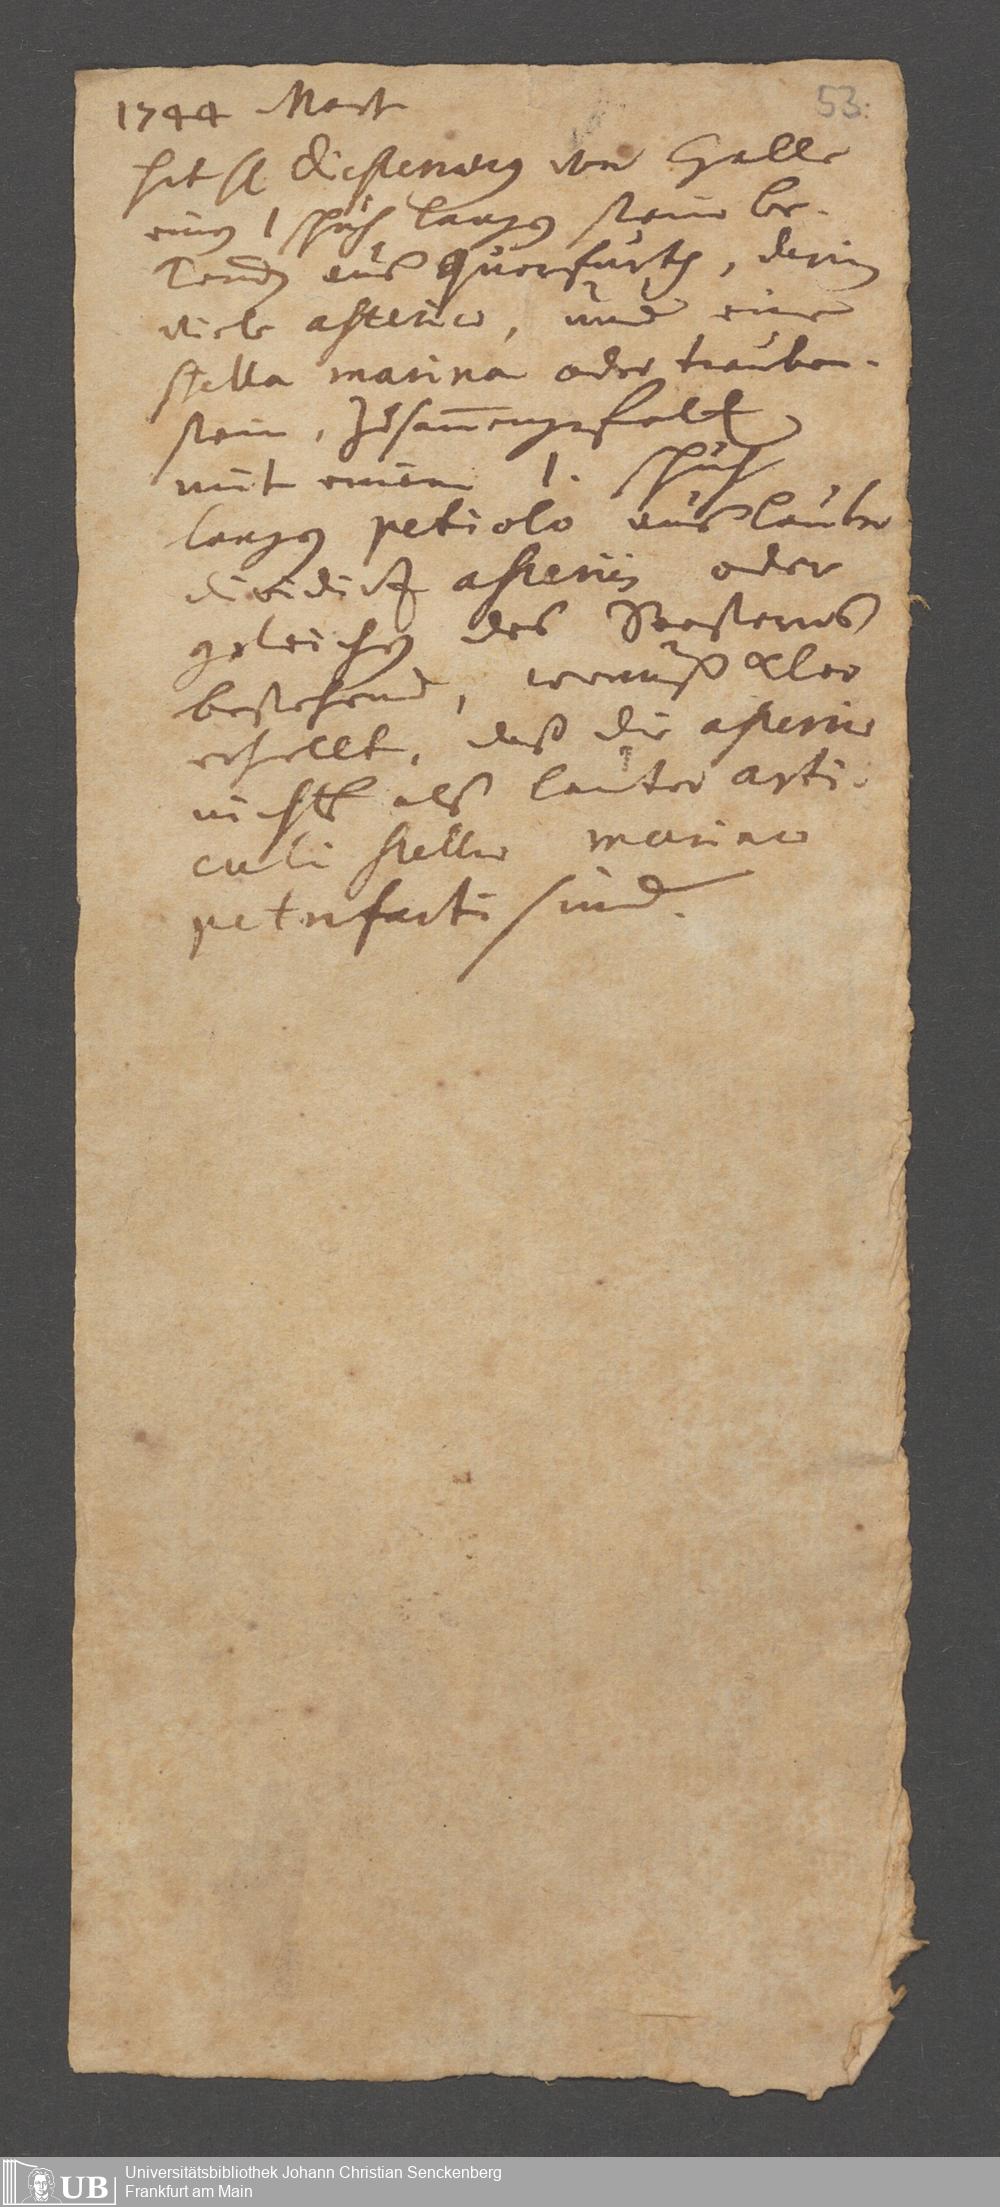 1744 Mart
53.
hat H Diesterweg von Halle
einen 1 schuh langen stein be-
kommen aus Querfurth, darin
viele asteriae, und eine
stella marina oder trauben-
stein, Zusammengesetzt
mit einem 1. schuh
langen petiolo aus lauter
asteriis oder
gleichen des Seesterns
bestehend, woraus klar
erhellt, daß die asteriae
nichts als lauter arti-
culi stellae marinae
petrefacti sind.
UB
Universitätsbibliothek Johann Christian Senckenberg
Frankfurt am Main